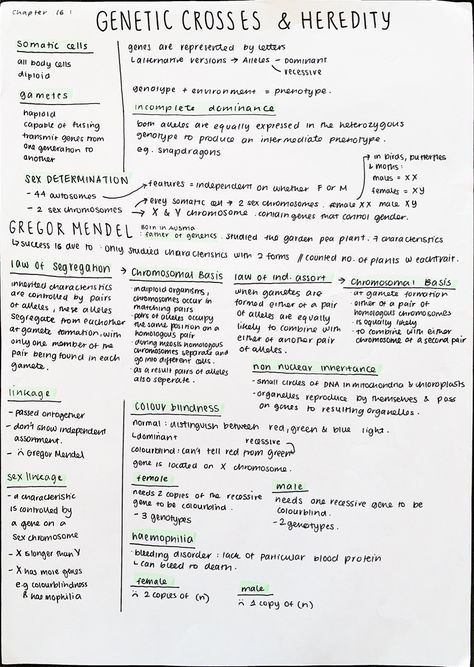 Chapter 16:
GENETIC CROSSES & HEREDITY
somatic cells
all body cells
diploid
gametes
haploid
capable of fusing
transmit genes from
one generation to
another
genes are represented by letters
↳ alternative versions → Alleles - dominant
recessive
genotype + environment = phenotype.
incomplete dominance
both alleles are equally expressed in the heterozygous
genotype to produce an intermediate phenotype.
eg. snapdragons
SEX DETERMINATION
- 44 autosomes
→ features = independent on whether F or M
→ in birds, butterflies
& moths:
males = XX
females = XY
- 2 sex chromosomes
→ every somatic cell → 2 sex chromosomes. female XX male XY
→ X & Y chromosome. contain genes that control gender.
GREGOR MENDEL
Born in Austria
: father of genetics. studied the garden pea plant. 7 characteristics
↳ success is due to: only studied characteristics with 2 forms // counted no. of plants w each trait.
law of segregation → chromosomal Basis
inherited characteristics
are controlled by pairs
of alleles, these alleles
segregate from eachother
at gamete formation. with
only one member of the
pair being found in each
gamete.
- in diploid organisms,
chromosomes occur in
matching pairs
- pairs of alleles occupy
the same position on a
homologous pair
- during meiosis homologous
chromosomes separate and
go into different cells.
- as a result pairs of alleles
also seperate.
law of ind. assort → chromosomal Basis
when gametes are
formed either or a pair
of alleles are equally
likely to combine with
either of another pair
of alleles.
- at gamete formation
- either of a pair of
homologous chromosomes
is equally likely
- to combine with either
chromosome of a second pair
non nuclear inheritance
- small circles of DNA in mitochondria & chloroplasts
- organelles reproduce by themselves & pass
on genes to resulting organelles.
linkage
- passed on together
- don't show independent
assortment.
Gregor Mendel
sex linkage
- a characteristic
is controlled by
a gene on a
sex chromosome
- X is longer than Y
- X has more genes
e.g colourblindness
& haemophilia
colour blindness
normal: distinguish between red, green & blue light.
↳ dominant
recessive
colourblind: can't tell red from green
gene is located on X chromosome.
female
needs 2 copies of the recessive
gene to be colourblind.
- 3 genotypes
male
needs one recessive gene to be
colourblind.
- 2 genotypes.
haemophilia
- bleeding disorder: lack of particular blood protein
↳ can bleed to death.
female
2 copies of (n)
male
1 copy of (n)